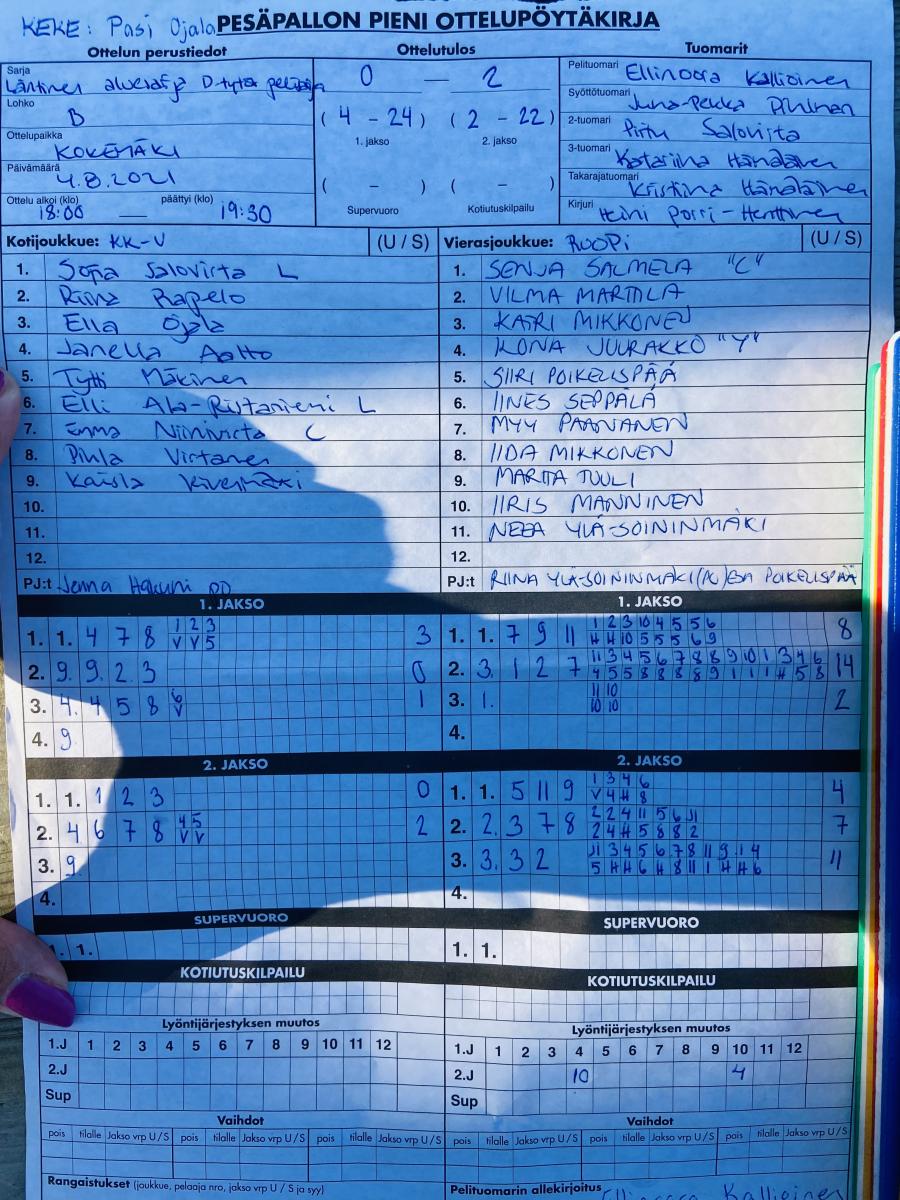 KEKE: Pasi Ojala PESÄPALLON PIENI OTTELUPÖYTÄKIRJA
Ottelun perustiedot
Sarja
Läntinen D-tytöt
Lohko
B
Ottelupaikka
KOKEMÄKI
Päivämäärä
4.8.2021
Ottelu alkoi (klo) päättyi (klo)
18:00 — 19:30
Ottelutulos
0 — 2
( 4 - 24 ) ( 2 - 22 )
1. jakso 2. jakso
( - ) ( - )
Supervuoro Kotiutuskilpailu
Tuomarit
Pelituomari Ellinoora Kallioinen
Syöttötuomari Juha-Pekka
2-tuomari Pirtu Salovirta
3-tuomari Katariina Hänäläinen
Takarajatuomari Kristiina Hänäläinen
Kirjuri Heini Porri-Henttinen
Kotijoukkue: KK-V (U / S)
1. Sofia Salovirta L
2. Riina Rapelo
3. Ella Ojala
4. Janella Aalto
5. Tytti Mäkinen
6. Elli Ala-Ristaniemi L
7. Emma Niinivirta C
8. Pihla Virtanen
9. Kaisla Kivemäki
10.
11.
12.
PJ:t Jenna
Vierasjoukkue: RUOPI (U / S)
1. SENJA SALMELA "C"
2. VILMA MARTTILA
3. KATRI MIKKONEN
4. ILONA JUURAKKO "Y"
5. SIIRI POIKELISPÄÄ
6. IINES SEPPÄLÄ
7. MYY PAANANEN
8. IIDA MIKKONEN
9. MARTTA TUULI
10. IIRIS MANNINEN
11. NEEA YLÄ-SOININMÄKI
12.
PJ:t RIINA YLÄ-SOININMÄKI ESA POIKELISPÄÄ
1. JAKSO
1 2 3
1. 1. 4 7 8 V V 5 3
2. 9. 9. 2 3 0
6
3. 4. 4 5 8 V 1
4. 9
2. JAKSO
1. 1. 1 2 3 0
4 5
2. 4 6 7 8 V V 2
3. 9.
4.
SUPERVUORO
1. 1.
KOTIUTUSKILPAILU
Lyöntijärjestyksen muutos
1.J 1 2 3 4 5 6 7 8 9 10 11 12
2.J
Sup
Vaihdot
pois tilalle Jakso vrp U / S pois tilalle Jakso vrp U / S pois tilalle Jakso vrp U / S
Rangaistukset (joukkue, pelaaja nro, jakso vrp U / S ja syy)
1. JAKSO
1 2 3 10 4 5 5 6
1. 1. 7 9 11 H H 10 5 5 5 6 9 8
11 3 4 5 6 7 8 8 9 10 1 3 4 6
2. 3. 1 2 7 4 5 5 8 8 8 8 9 1 1 1 H 5 8 14
11 10
3. 1. 10 10 2
4.
2. JAKSO
1 3 4 6
1. 1. 5 11 9 V 4 H 8 4
2 2 4 11 5 6 11
2. 2. 3 7 8 2 4 H 5 8 8 2 7
11 3 4 5 6 7 8 11 9 1 4
3. 3. 3 2 5 H H 6 H 8 11 1 H H 6 11
4.
SUPERVUORO
1. 1.
KOTIUTUSKILPAILU
Lyöntijärjestyksen muutos
1.J 1 2 3 4 5 6 7 8 9 10 11 12
2.J 10 4
Sup
Vaihdot
pois tilalle Jakso vrp U / S pois tilalle Jakso vrp U / S pois tilalle Jakso vrp U / S
Pelituomarin allekirjoitus Ellinoora Kallioinen